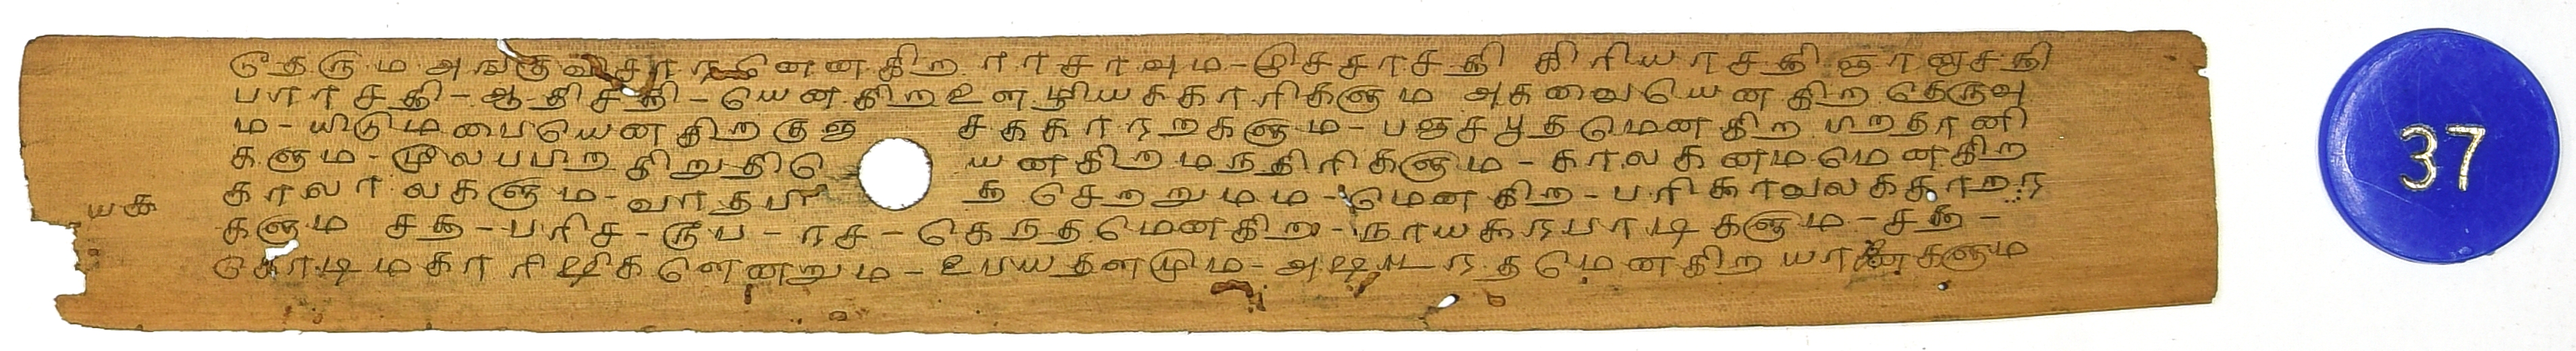 தெரும அஙகுவிசாரனெனகிற ராசாவும-இசசாசத்தி கிரியாசத்தி ஞானசத்தி
பராசத்தி-ஆதிசத்தி-யெனகிற உளளூழியககாரிகளும அகவையெனகிற தெருவு
ம-யிடுமபையெனகிற குஞ சககாரரறகளும-பஞசபூதமெனகிற பிறதானி
களும-மூலபபிற கிறுதியெ யனகிற மநதிரிகளும-காலகனமமெனகிற
காலாலகளும-வாதபி த செறறுமம-மெனகிற-பரிகாவலககாறர
களும சத்த-பரிச-ரூப-ரச-கெநதமெனகிற-நாயககரபாடிகளும-சத்த-
கோடிமகாரிஷிகளெனறும-உபயதளமும-அஷடரதமெனகிற யானைகளும
யக
37